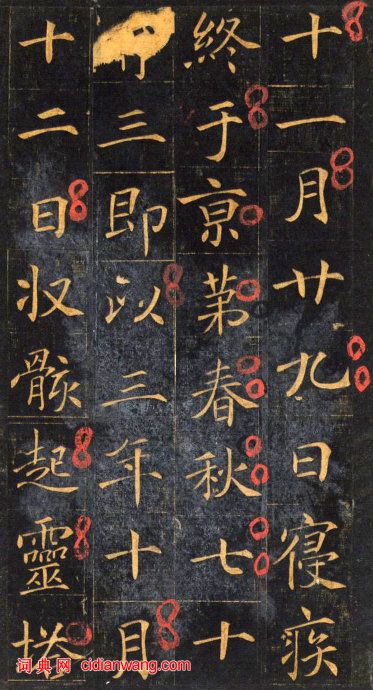 十一月廿九日寑疾
終于亰苐春秋七十
三即以三年十月
十二日収骸起靈塔
词典网 cidianwang.com